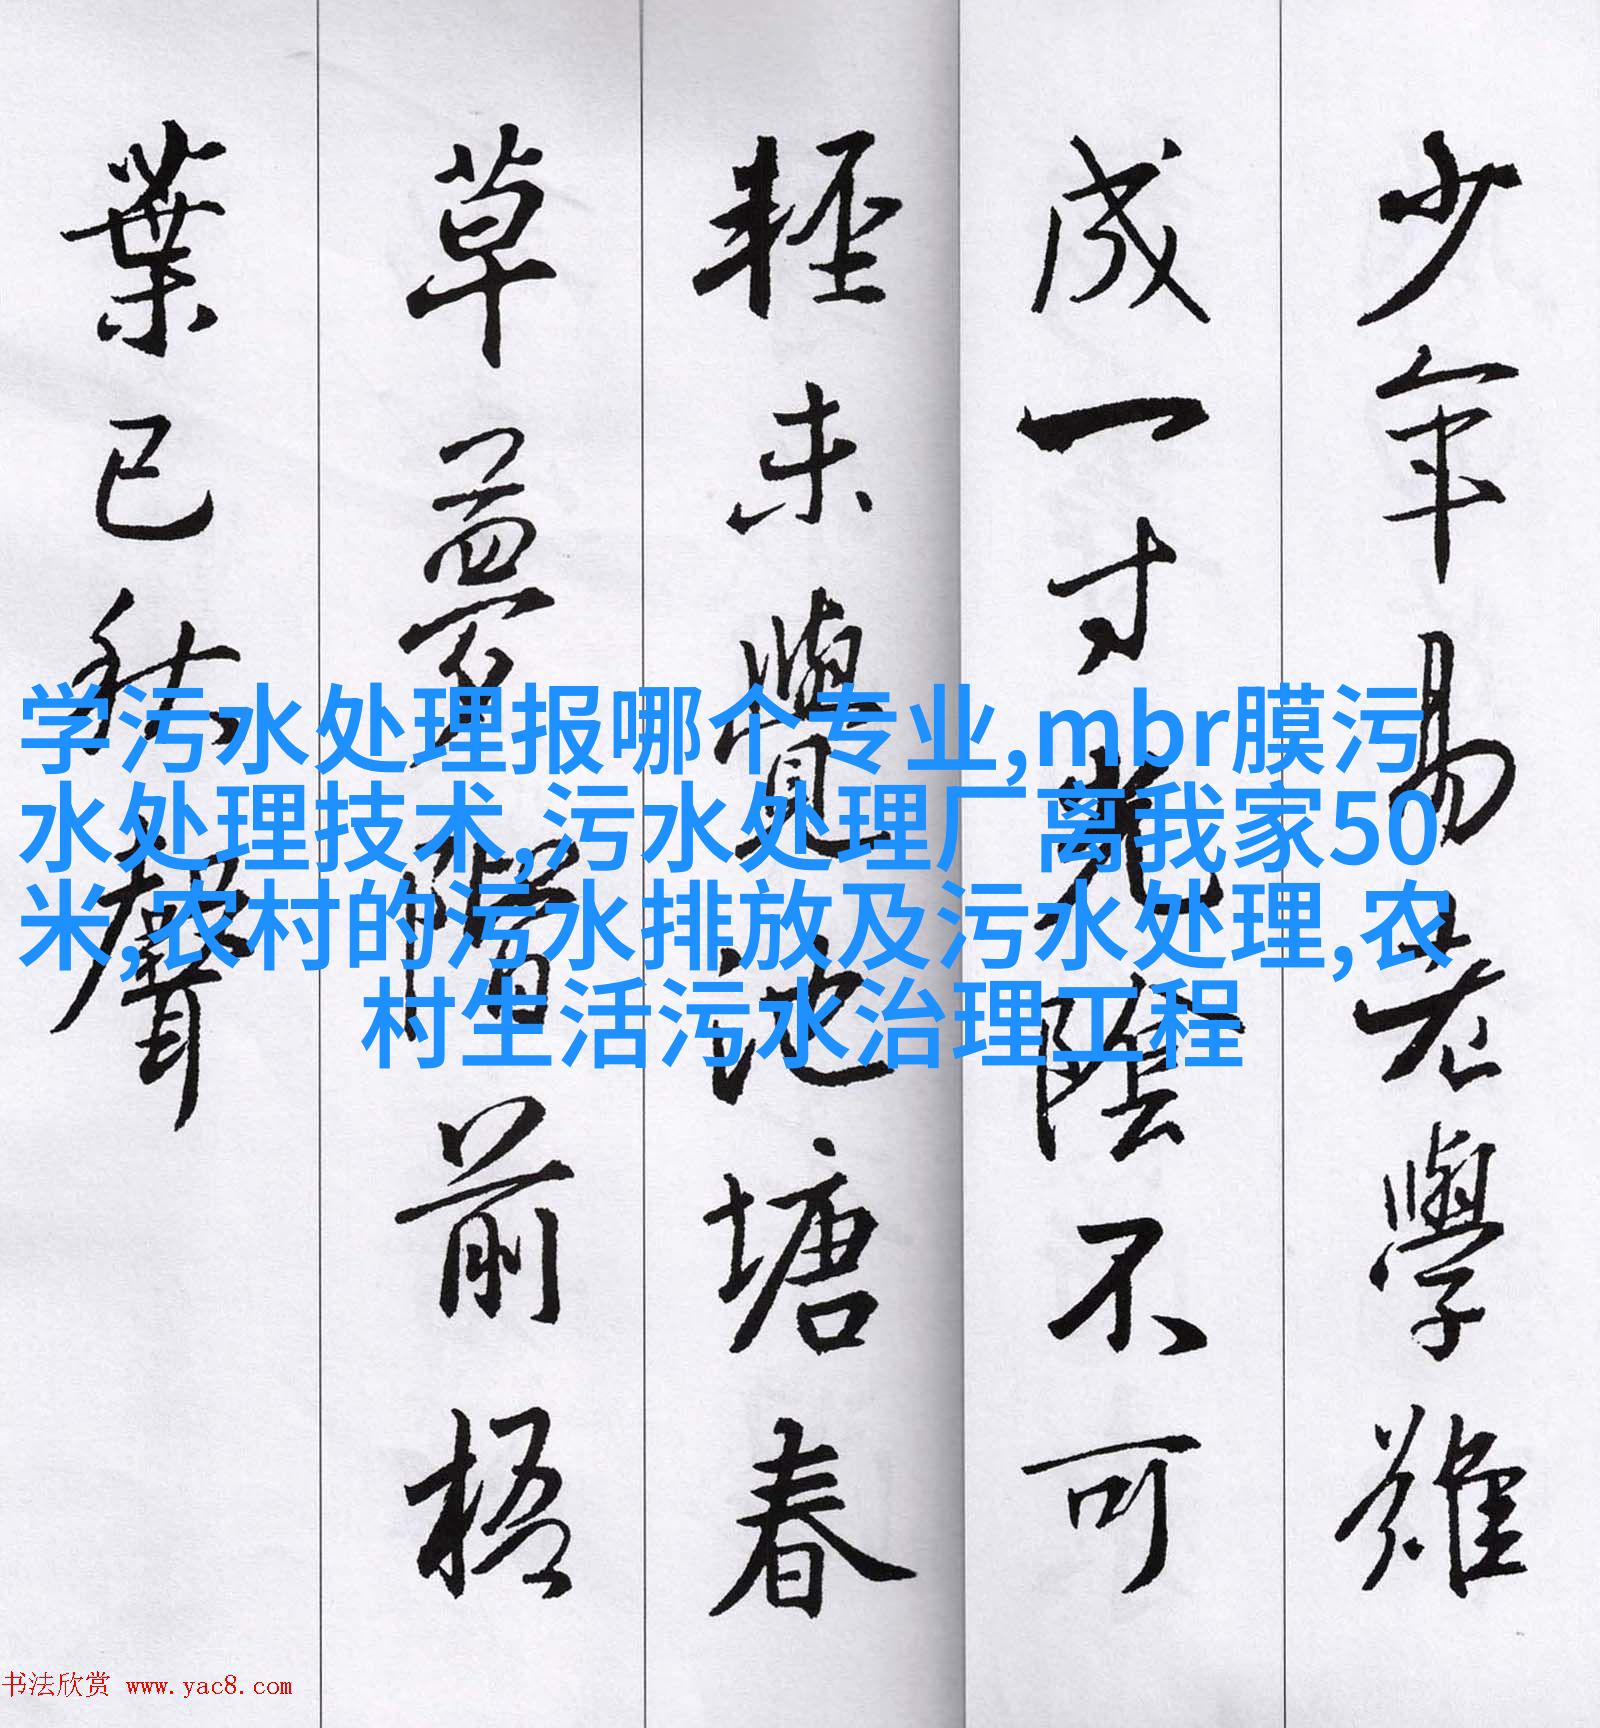 少年易老學難
成一寸光陰不可
輕未覺池塘春
草夢階前梧
葉已秋聲
学污水处理报哪个专业,mbr膜污
水处理技术,污水处理厂离我家50
米,农村的污水排放及污水处理,农
村生活污水治理工程
书法欣赏 www.yac8.com